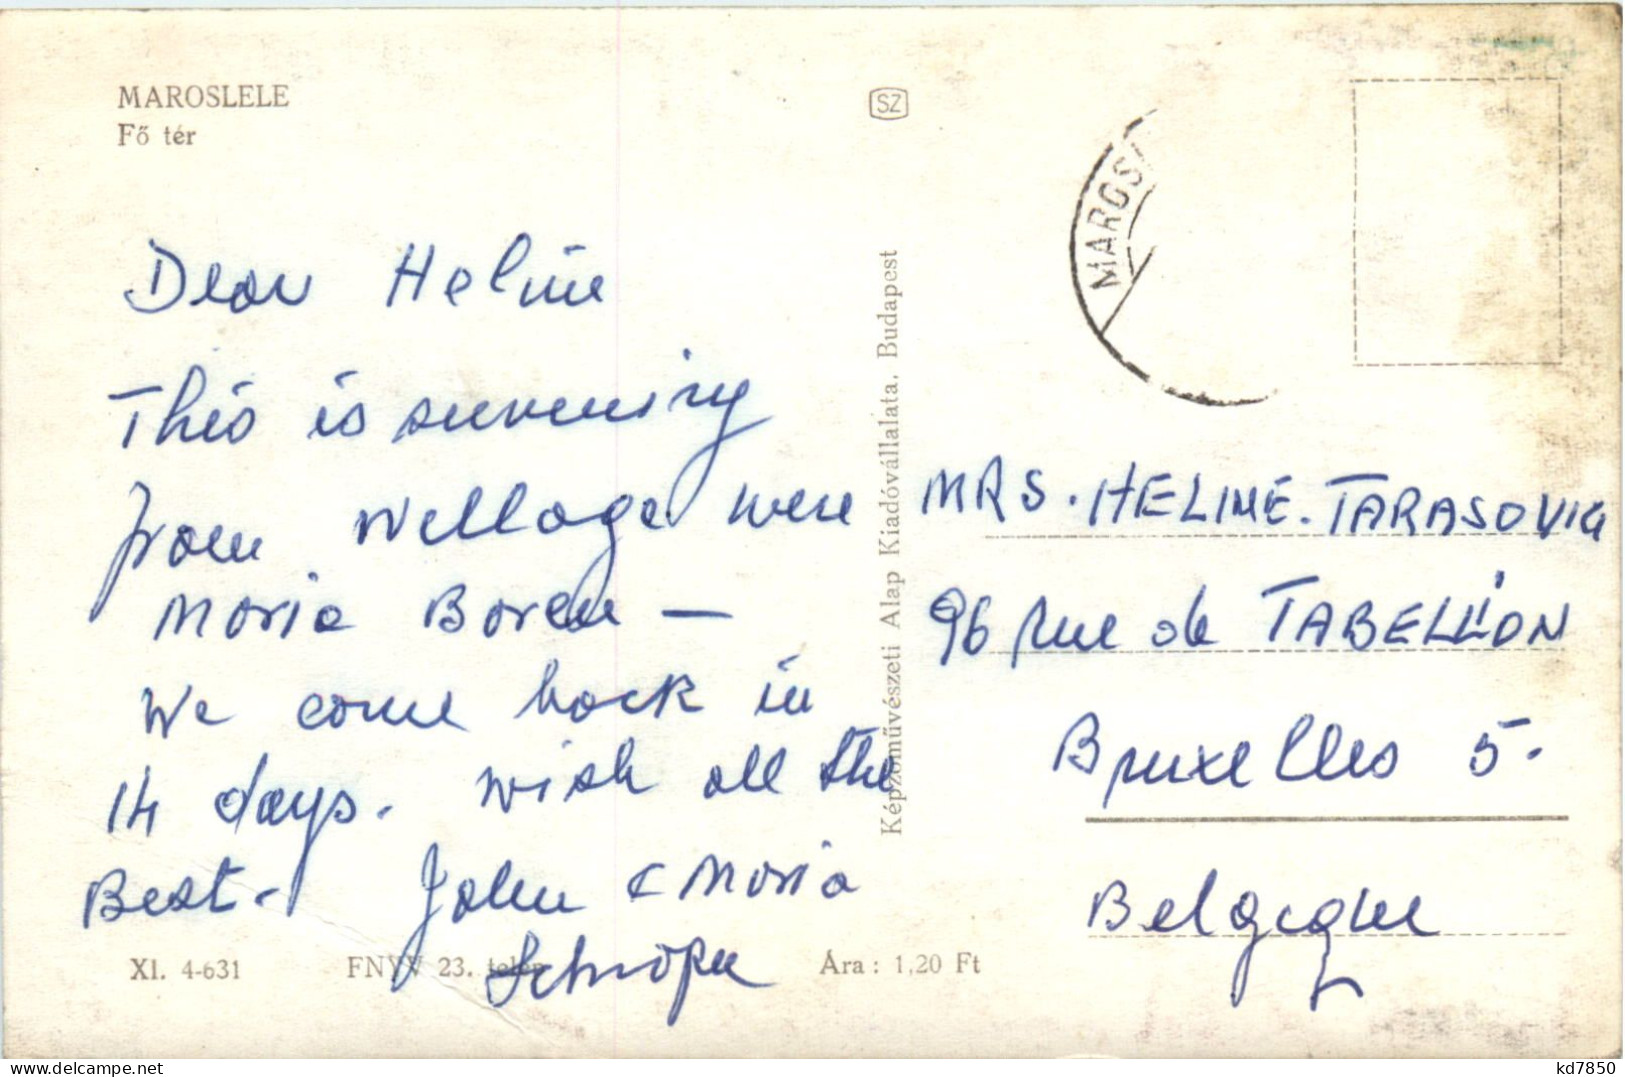 MAROSLELE
Fő tér
SZ
MAROS
Dear Heline
This is suveniry
from wellage were
Maria Boren —
We come back in
14 days. wish all the
Best. John & Maria
XI. 4-631 FNYV 23. telep Ára: 1,20 Ft
Képzőművészeti Alap Kiadóvállalata, Budapest
MRS. HELINE. TARASOVIG
96 rue de TABELLION
Bruxelles 5.
Belgique
kd7850